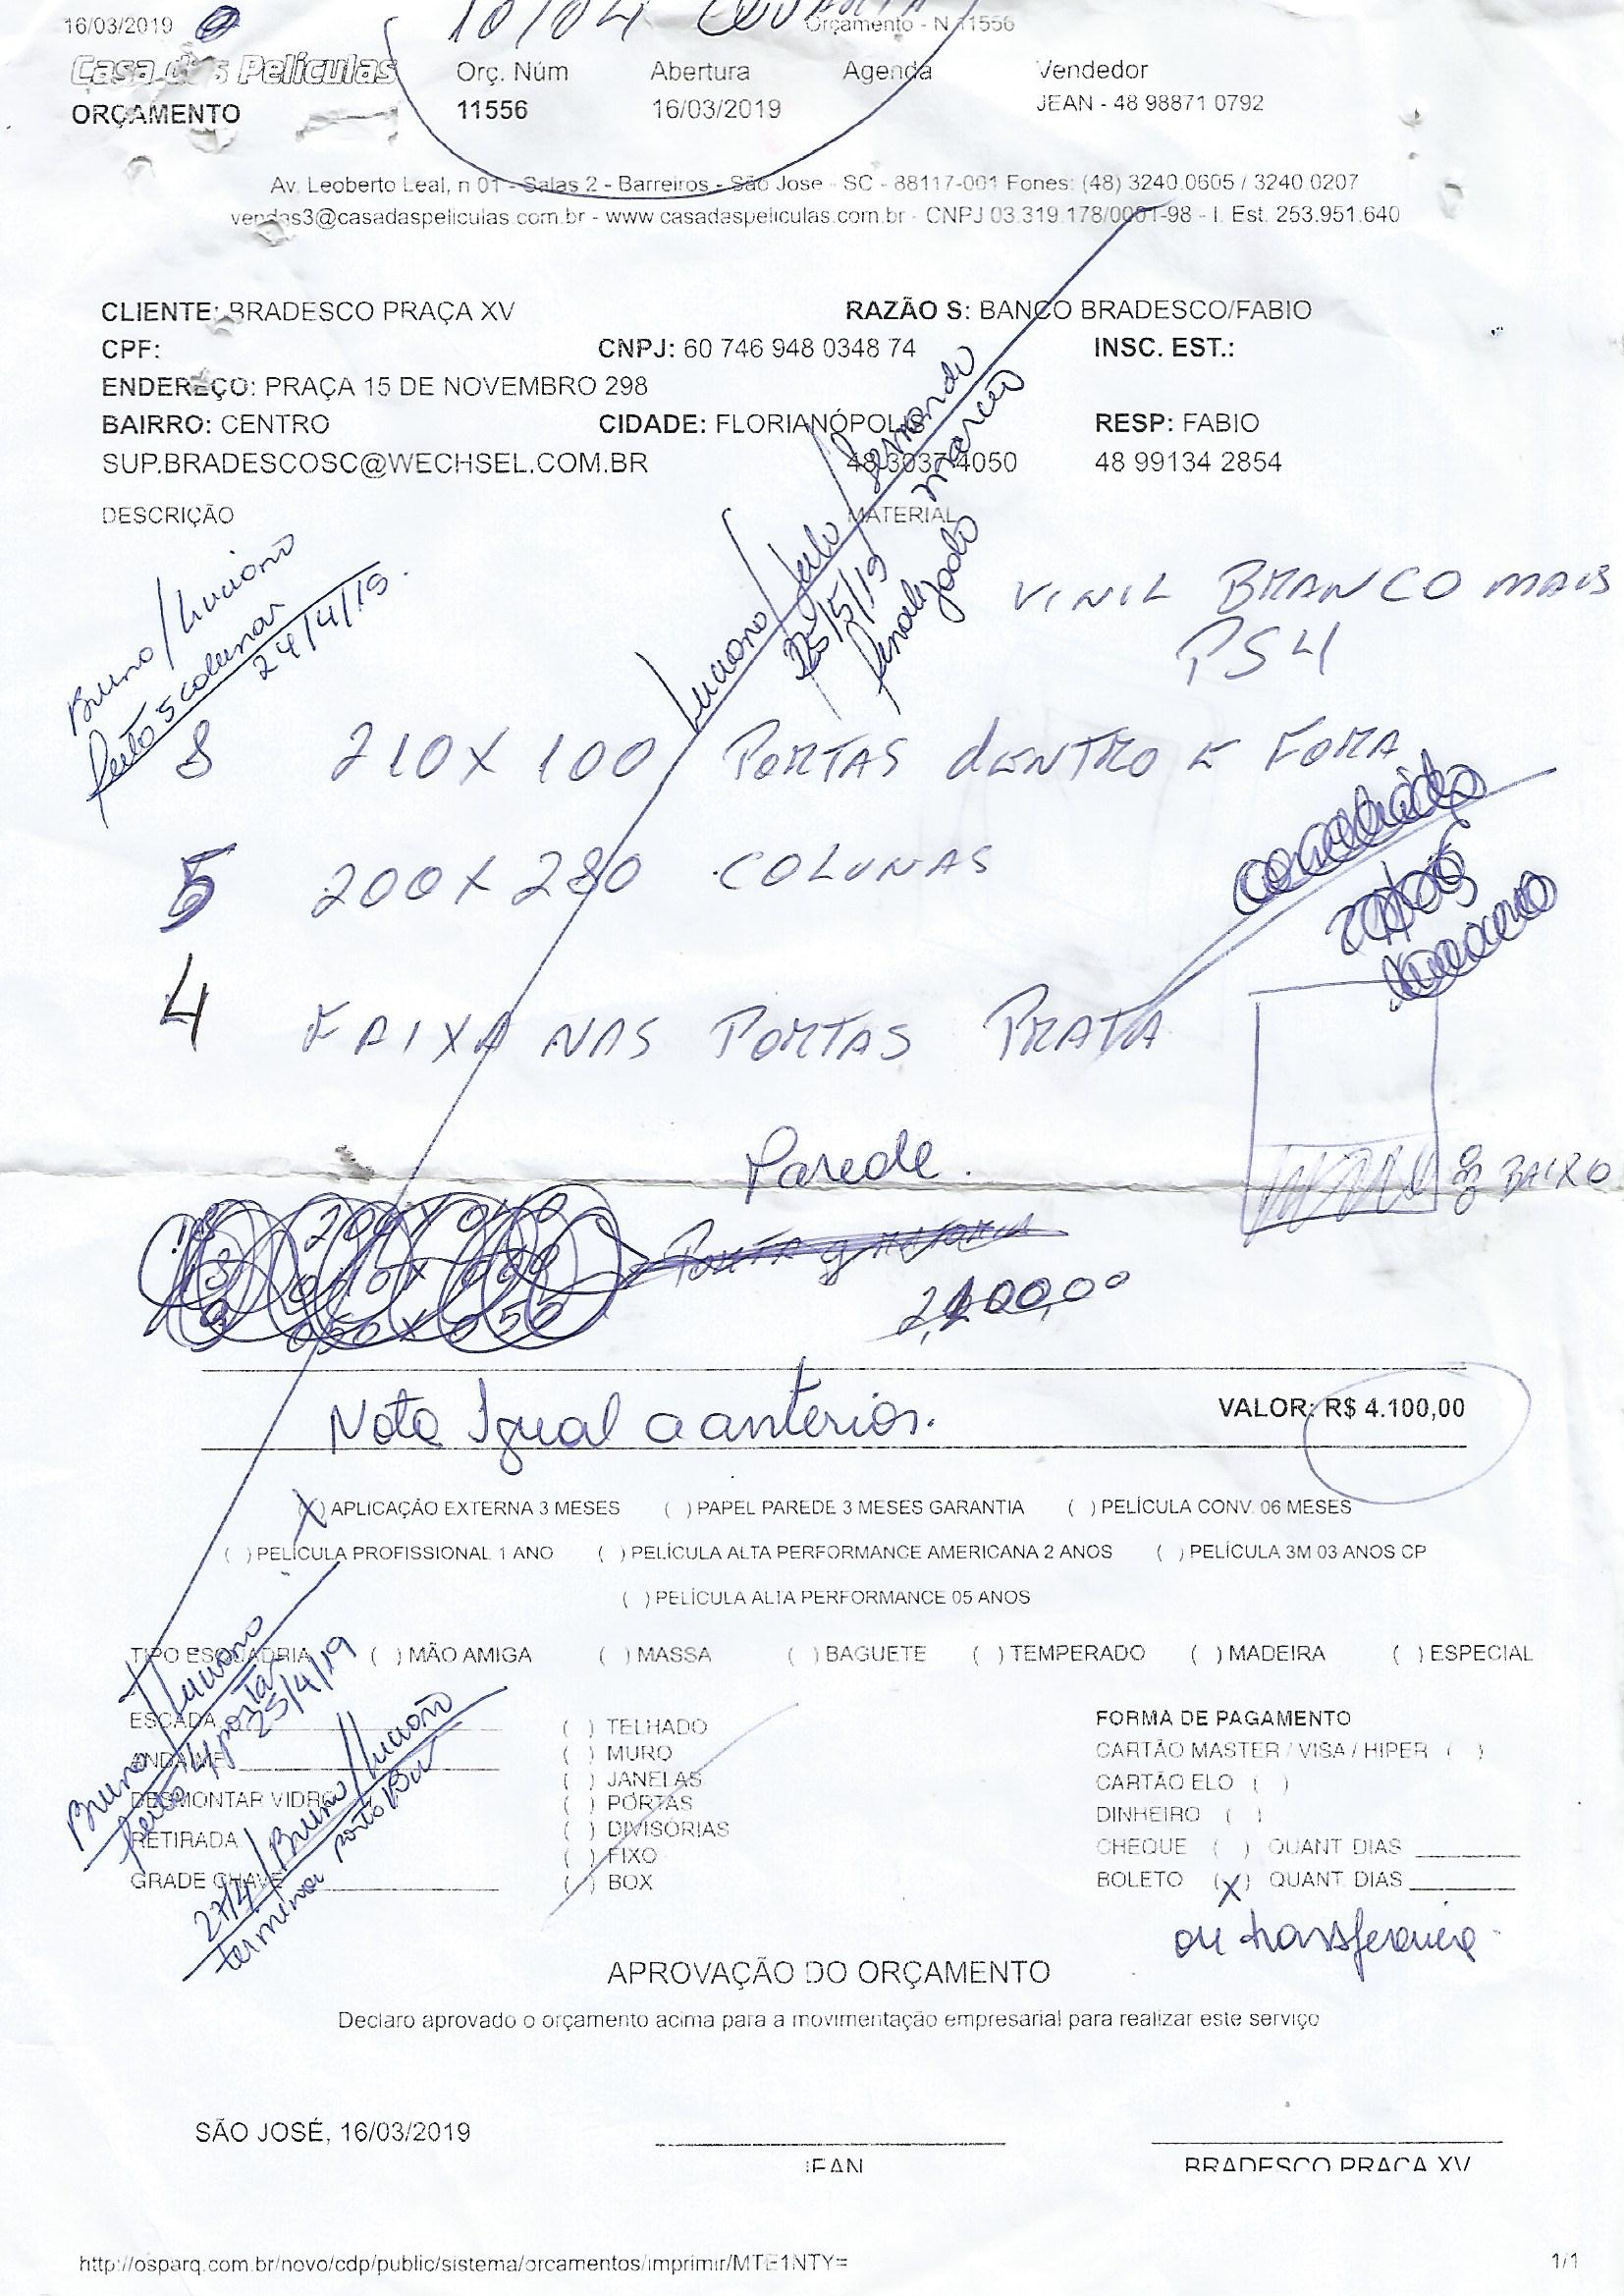 16/03/2019 Orçamento - N 11556
10/04
Casa das Películas Orç. Núm Abertura Agenda Vendedor
ORÇAMENTO 11556 16/03/2019 JEAN - 48 98871 0792
Av. Leoberto Leal, n 01 - Salas 2 - Barreiros - São Jose - SC - 88117-001 Fones: (48) 3240.0605 / 3240.0207
vendas3@casadaspeliculas.com.br - www.casadaspeliculas.com.br - CNPJ 03.319.178/0001-98 - I. Est. 253.951.640
CLIENTE: BRADESCO PRAÇA XV RAZÃO S: BANCO BRADESCO/FABIO
CPF: CNPJ: 60 746 948 0348 74 INSC. EST.:
ENDEREÇO: PRAÇA 15 DE NOVEMBRO 298
BAIRRO: CENTRO CIDADE: FLORIANÓPOLIS RESP: FABIO
SUP.BRADESCOSC@WECHSEL.COM.BR 48 3037 4050 48 99134 2854
DESCRIÇÃO MATERIAL
Bruno/Luciano
feito 5 colunas
24/4/19
Luciano/Julio/Fernando
Marcio
25/5/19
finalizado
VINIL BRANCO MAIS
PS4
8 210 X 100 PORTAS DENTRO E FORA
5 200 X 280 COLUNAS
4 FAIXA NAS PORTAS PRATA
Parede.
BAIXO
2,100,00
Nota Igual a anterior.
VALOR: R$ 4.100,00
(X) APLICAÇÃO EXTERNA 3 MESES ( ) PAPEL PAREDE 3 MESES GARANTIA ( ) PELÍCULA CONV. 06 MESES
( ) PELÍCULA PROFISSIONAL 1 ANO ( ) PELÍCULA ALTA PERFORMANCE AMERICANA 2 ANOS ( ) PELÍCULA 3M 03 ANOS CP
( ) PELÍCULA ALTA PERFORMANCE 05 ANOS
TIPO ESQUADRIA ( ) MÃO AMIGA ( ) MASSA ( ) BAGUETE ( ) TEMPERADO ( ) MADEIRA ( ) ESPECIAL
Bruno/Luciano
feito 4 portas
25/4/19
27/4/Bruno/Luciano
terminar
ESCADA
ANDAIME
DESMONTAR VIDRO
RETIRADA
GRADE CHAVE
( ) TELHADO
( ) MURO
( ) JANELAS
( ) PORTAS
( ) DIVISÓRIAS
( ) FIXO
( ) BOX
FORMA DE PAGAMENTO
CARTÃO MASTER / VISA / HIPER ( )
CARTÃO ELO ( )
DINHEIRO ( )
CHEQUE ( ) QUANT DIAS
BOLETO (X) QUANT. DIAS
ou transferencia
APROVAÇÃO DO ORÇAMENTO
Declaro aprovado o orçamento acima para a movimentação empresarial para realizar este serviço
SÃO JOSÉ, 16/03/2019
JEAN BRADESCO PRAÇA XV
http://osparq.com.br/novo/cdp/public/sistema/orcamentos/imprimir/MTE1NTY= 1/1